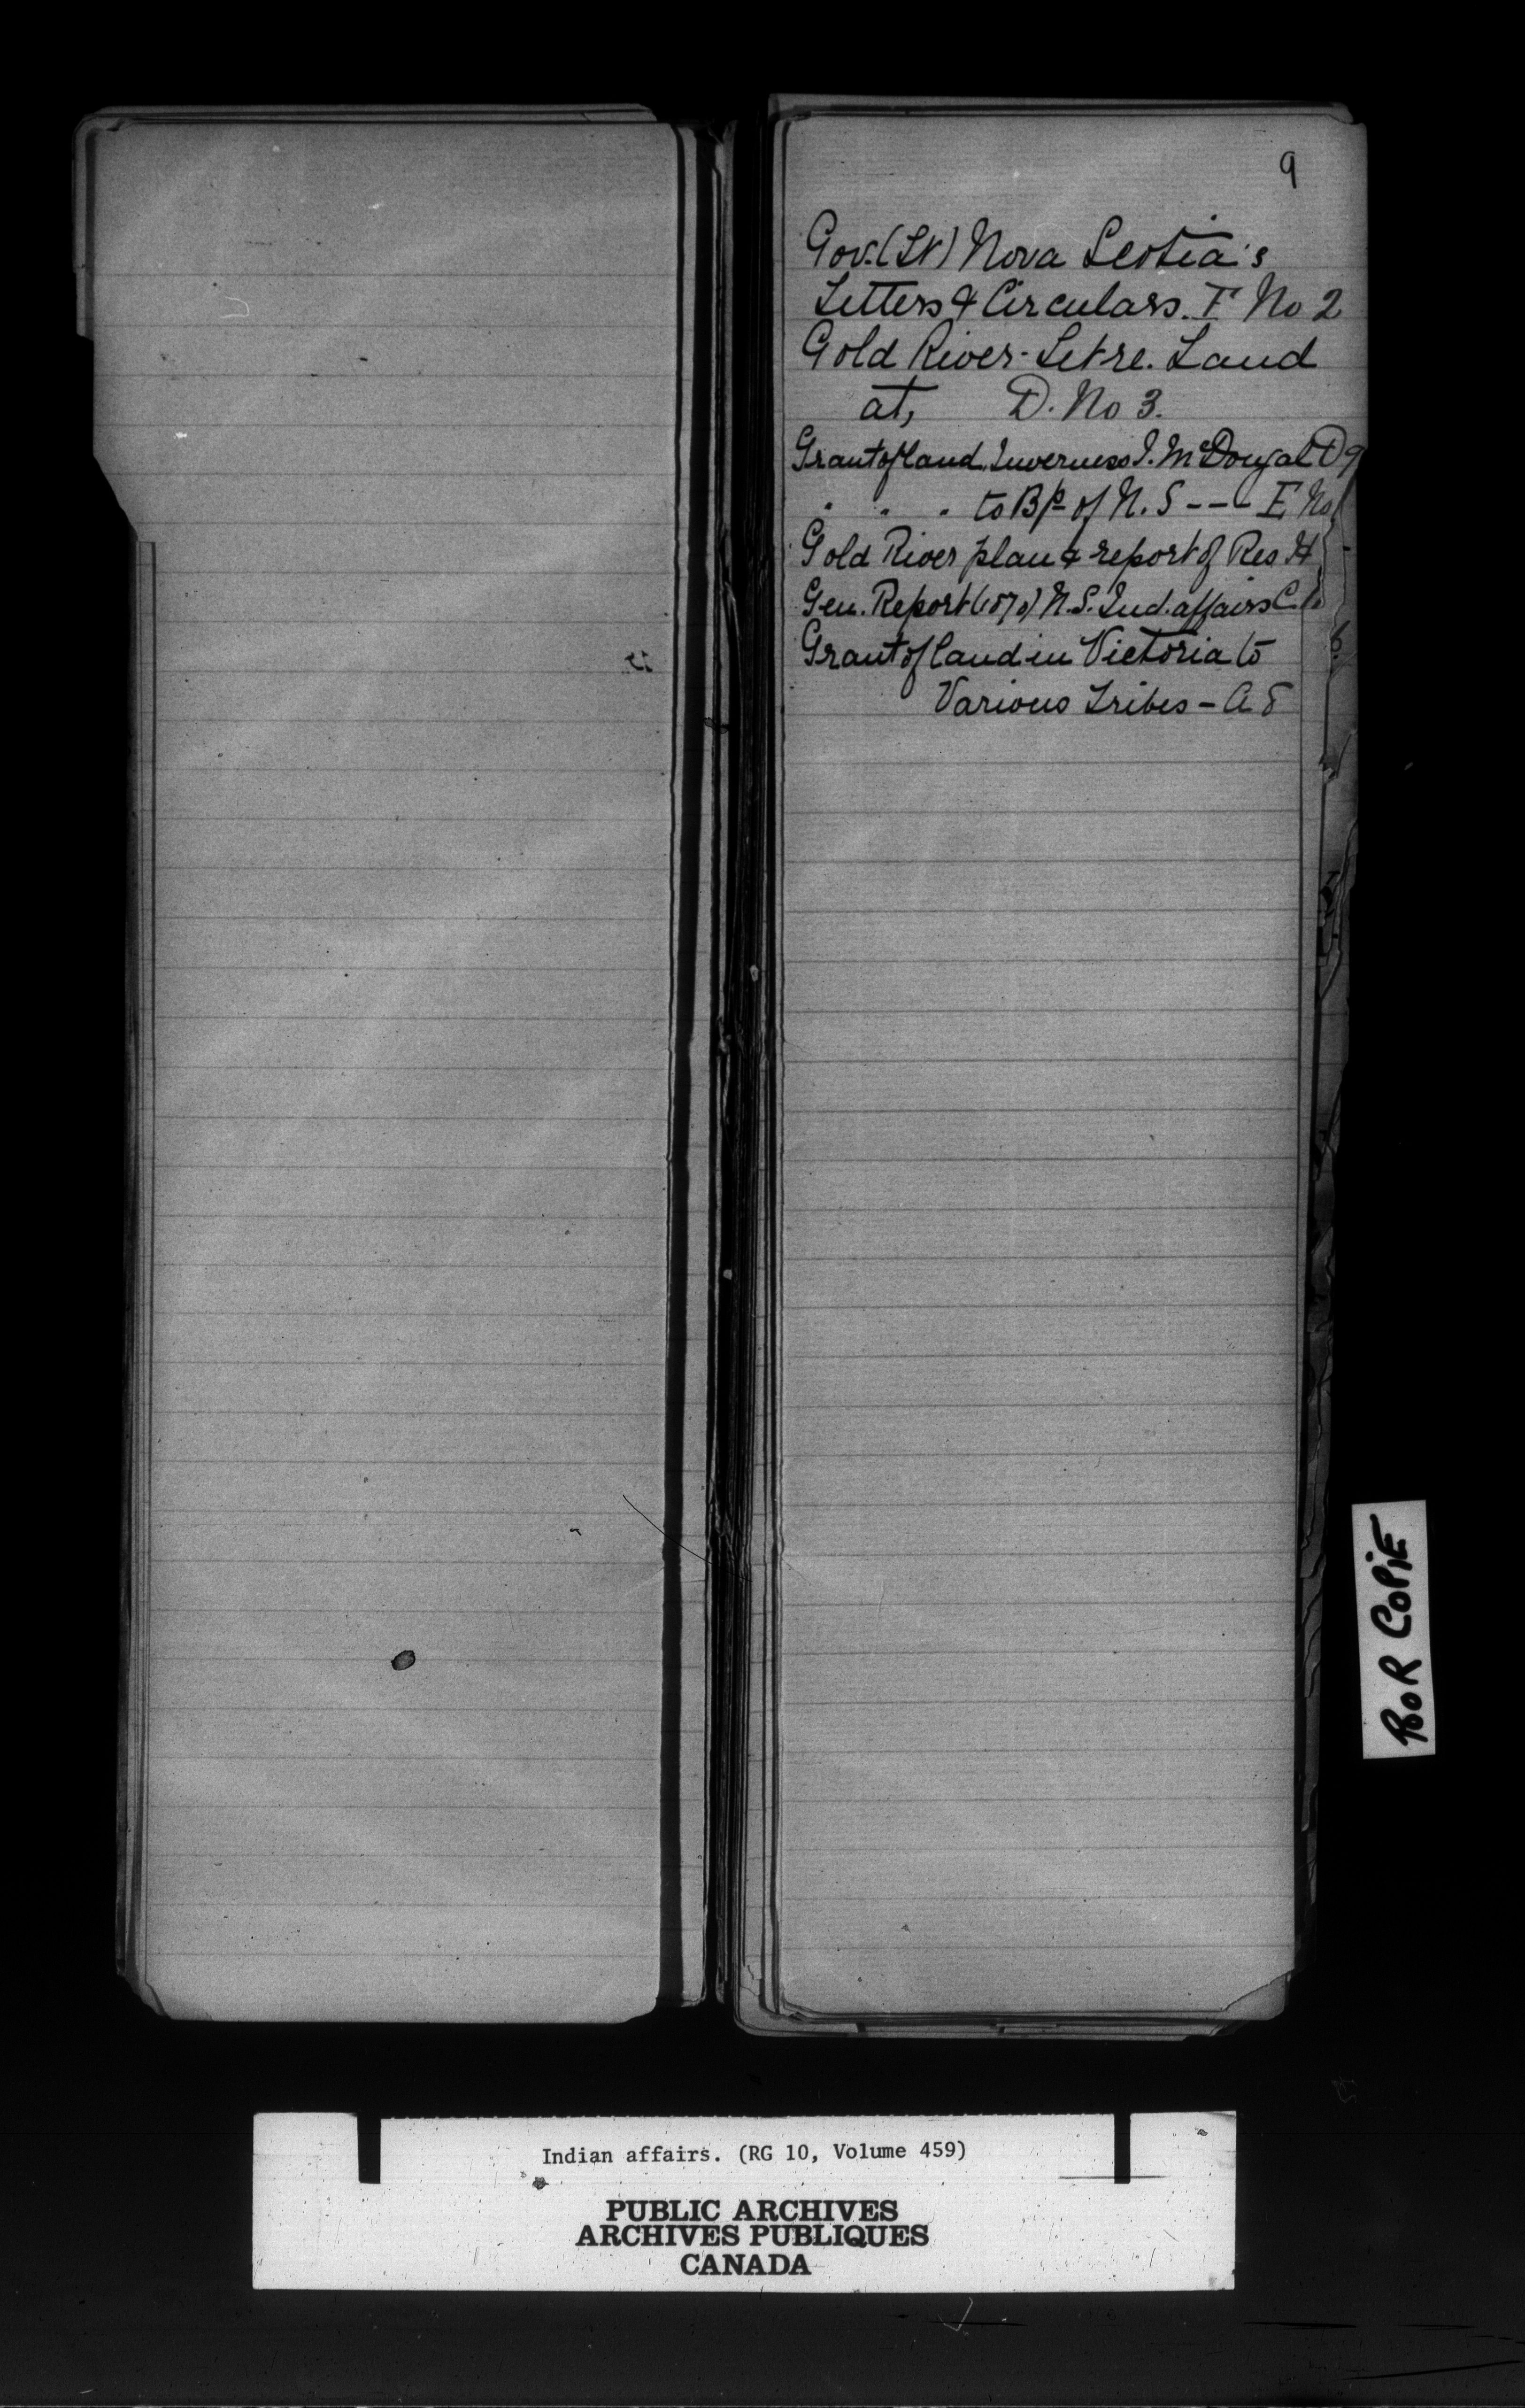 9
Gov. (Lt) Nova Scotia's
Letters & Circulars. F No 2
Gold River - Let re. Land
at, D. No 3.
Grant of land Inverness J. McDougal D 9
" " " to Bp of N. S --- E No
Gold River plan & report of Res H
Gen. Report (1870) N.S. Ind. affairs C.
Grant of land in Victoria to
Various Tribes - A 8
POOR COPIE
Indian affairs. (RG 10, Volume 459)
PUBLIC ARCHIVES
ARCHIVES PUBLIQUES
CANADA